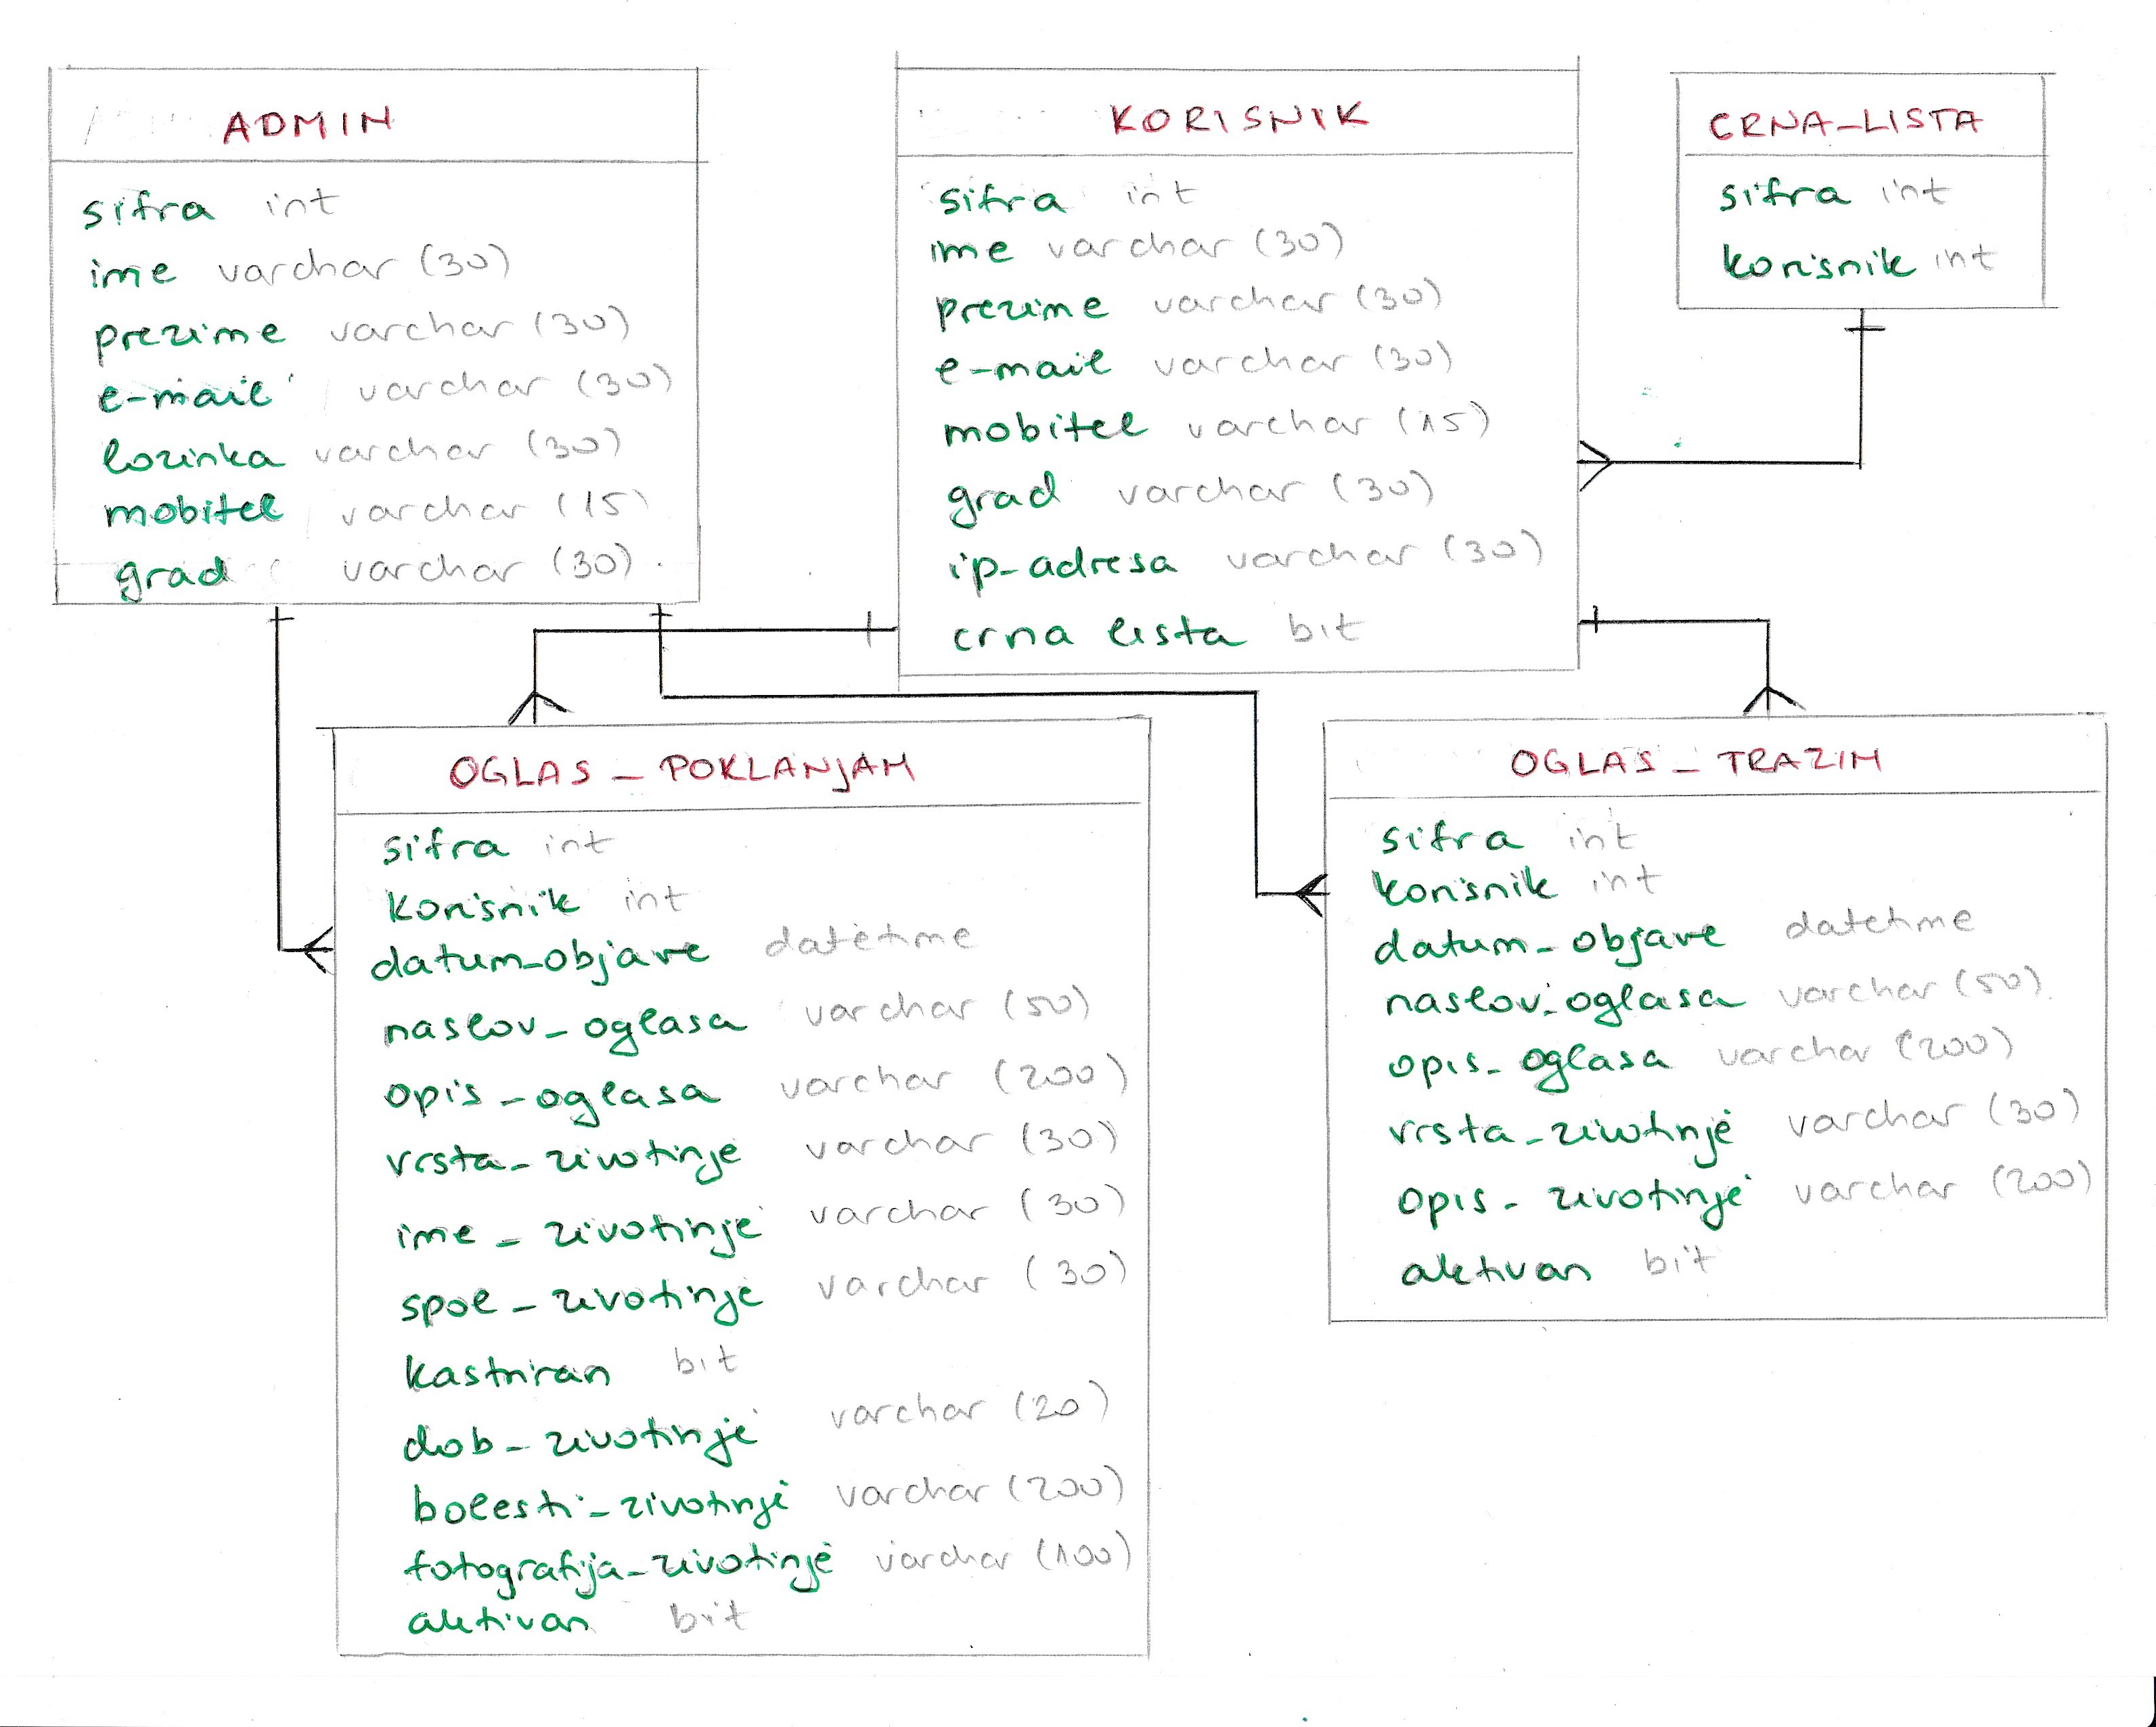 ADMIN
sifra int
ime varchar (30)
prezime varchar (30)
e-mail varchar (30)
lozinka varchar (30)
mobitel varchar (15)
grad varchar (30)
KORISNIK
sifra int
ime varchar (30)
prezime varchar (30)
e-mail varchar (30)
mobitel varchar (15)
grad varchar (30)
ip-adresa varchar (30)
crna lista bit
CRNA_LISTA
sifra int
korisnik int
OGLAS_POKLANJAM
sifra int
korisnik int
datum_objave datetime
naslov_oglasa varchar (50)
opis_oglasa varchar (200)
vrsta_zivotinje varchar (30)
ime_zivotinje varchar (30)
spol_zivotinje varchar (30)
kastriran bit
dob_zivotinje varchar (20)
bolesti_zivotinje varchar (200)
fotografija_zivotinje varchar (100)
aktivan bit
OGLAS_TRAZIM
sifra int
korisnik int
datum_objave datetime
naslov_oglasa varchar (50)
opis_oglasa varchar (200)
vrsta_zivotinje varchar (30)
opis_zivotinje varchar (200)
aktivan bit